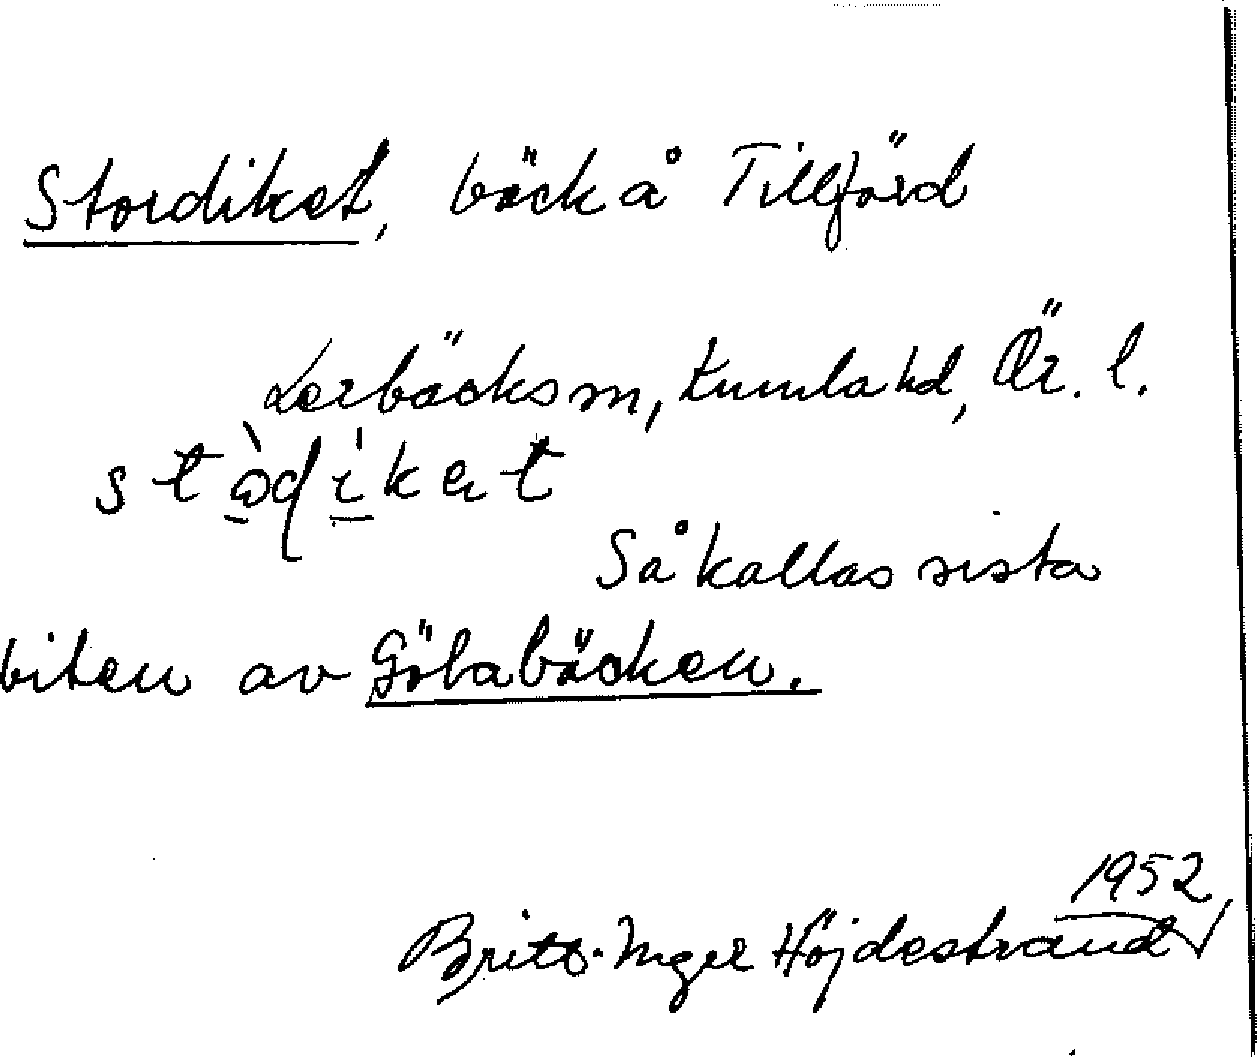 Stordiket, bäck å Tillförd
Lerbäcks sn, Kumla hd, Ör. l.
Så kallas sista
biten av Götabäcken.
1952
Britt-Inger Höjdestrand